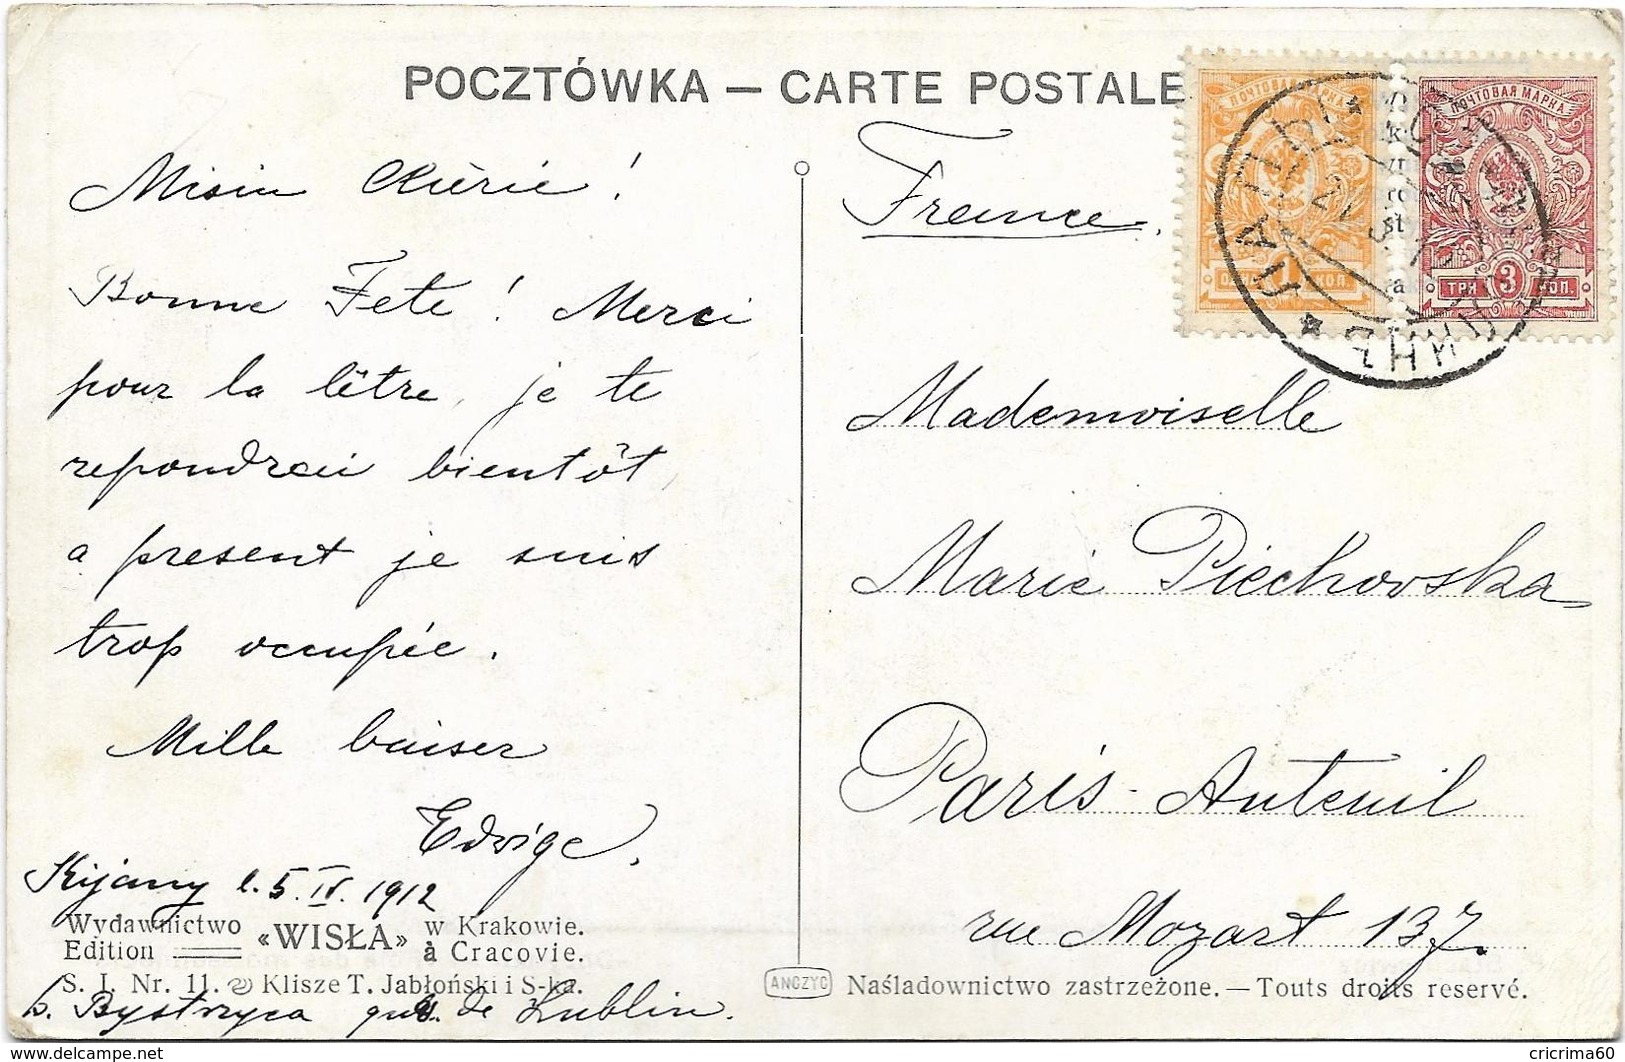 POCZTÓWKA — CARTE POSTALE
Misiu Chèrie!
Bonne Fete! Merci
pour la lêtre, je te
repondrai bientôt,
a present je suis
trop occupée.
Mille baiser
Edwige.
Kijany l. 5 IV. 1912
Wydawnictwo
Edition
«WISŁA»
w Krakowie.
à Cracovie.
S. I. Nr. 11. Klisze T. Jabłoński i S-ka.
p. Bystrzyca gub. de Lublin.
France.
ПОЧТОВАЯ МАРКА
1 КОП.
ПОЧТОВАЯ МАРКА
ТРИ 3 КОП.
Mademoiselle
Marie Piechovska
Paris-Auteuil
rue Mozart 137.
ANCZYC
Naśladownictwo zastrzeżone. — Touts droits reservé.
https://www.delcampe.net
cricrima60